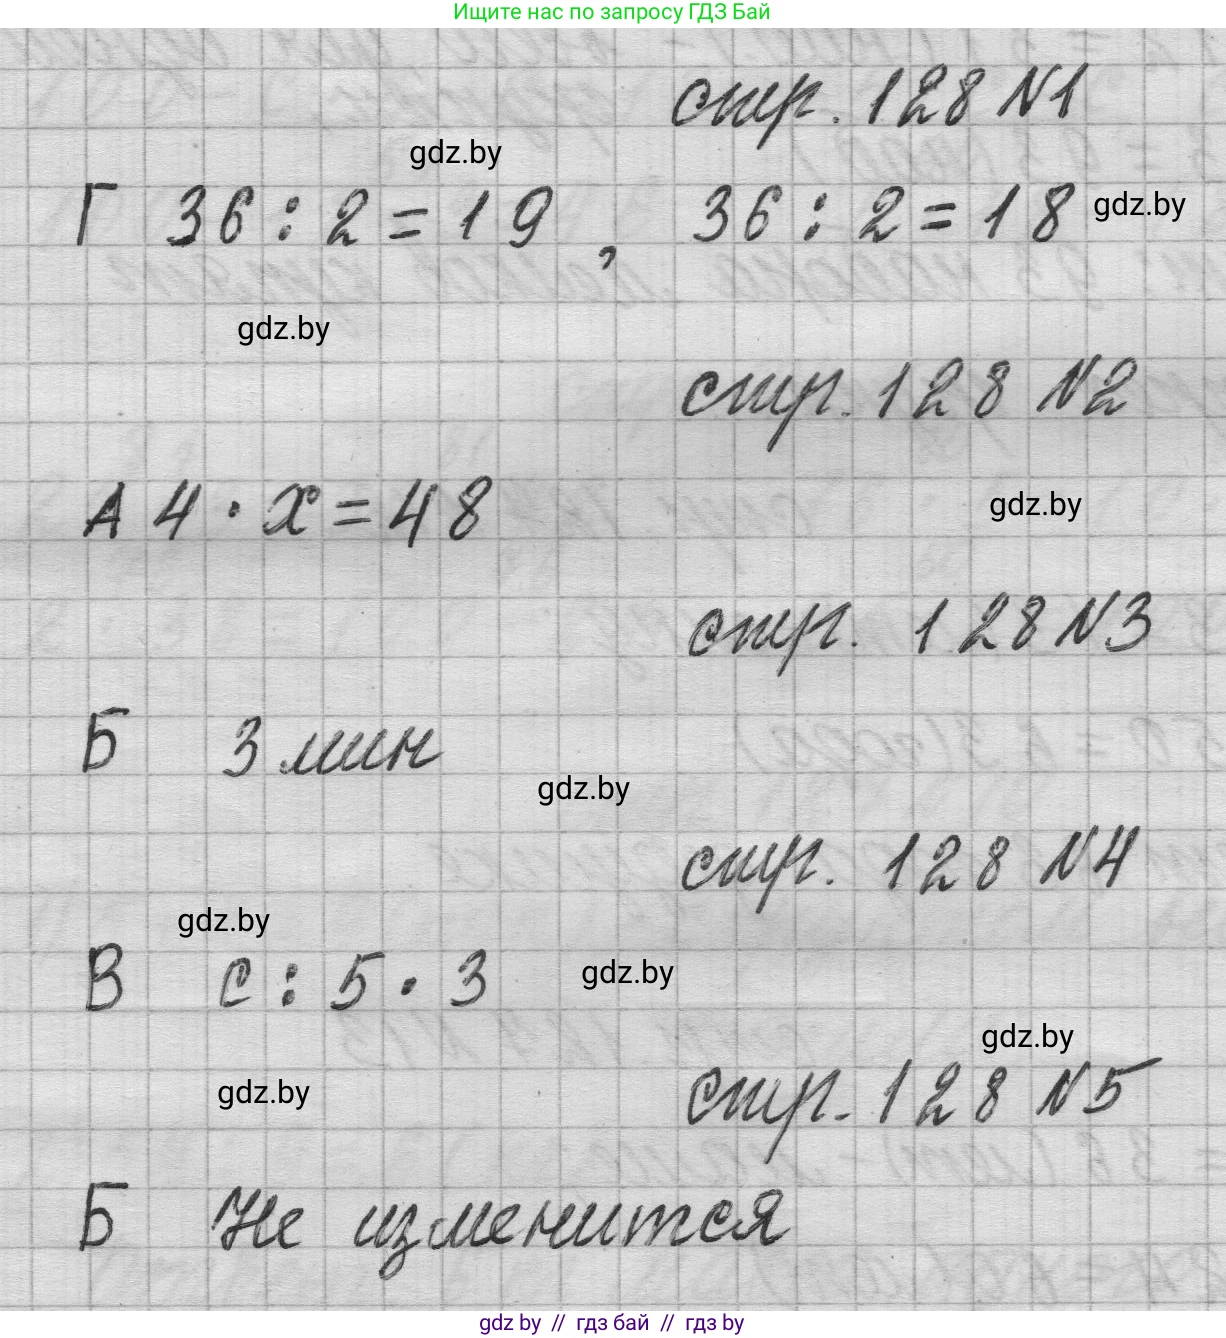 Ищите нас по запросу ГДЗ Бай
стр. 128 №1
gdz.by
Г 36 : 2 = 19 , 36 : 2 = 18 gdz.by
gdz.by
стр. 128 №2
А 4 · х = 48
gdz.by
стр. 128 №3
Б 3 мин
gdz.by
стр. 128 №4
gdz.by
В с : 5 · 3 gdz.by
gdz.by
gdz.by
стр. 128 №5
Б Не изменится
gdz.by // гдз бай // гдз by